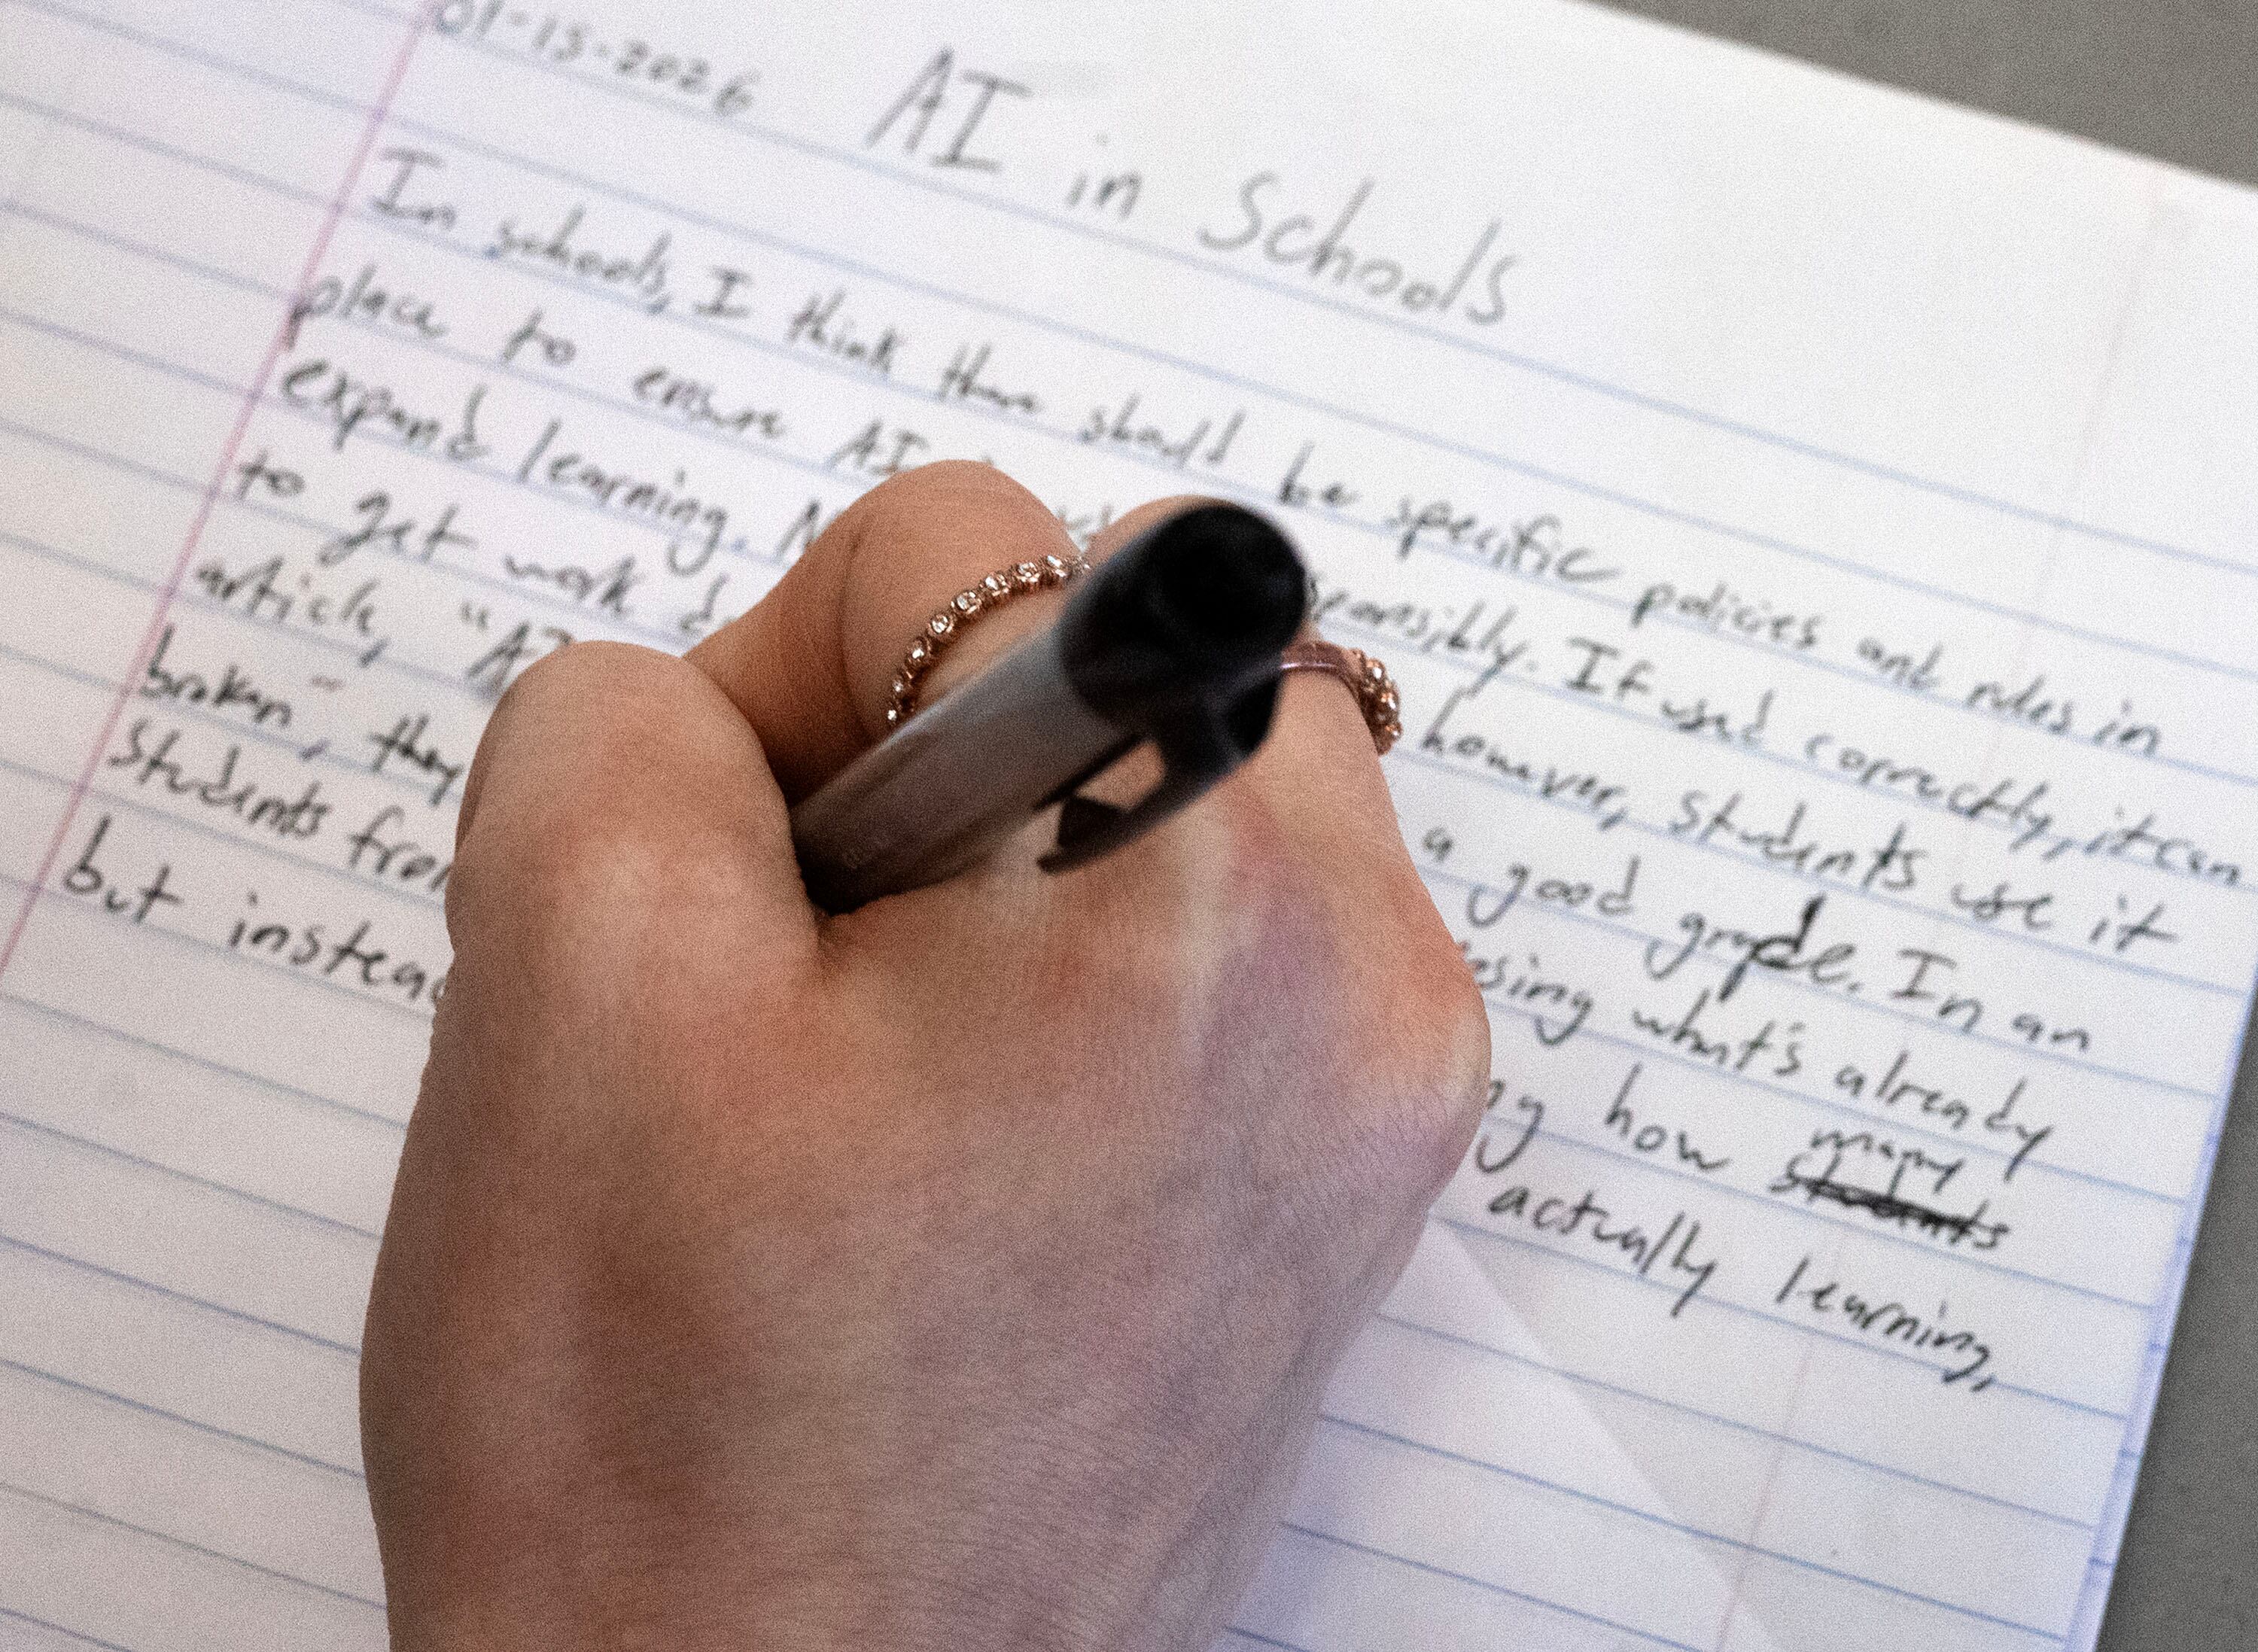 01-13-2026 AI in Schools
In schools, I think there should be specific policies and rules in
place to ensure AI responsibly. If used correctly, it can
expand learning. however, students use it
to get work a good grade. In an
article, "AI what's already
broken", they how many
students from actually learning,
but instead